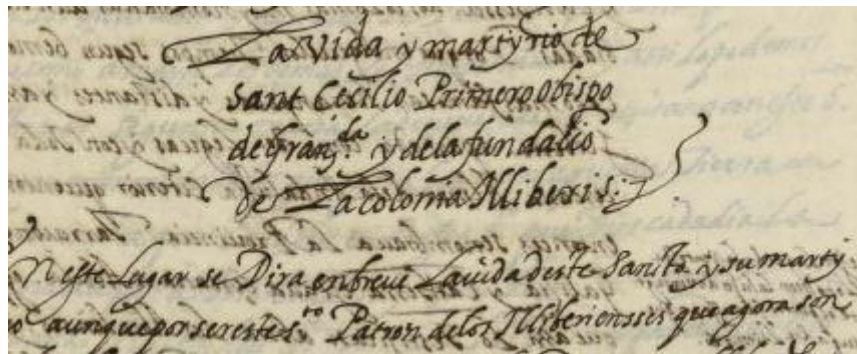 La vida y martyrio de
Sant Cecilio Primero Obispo
de gran.da y de la fundaçiõ
de La colonia Illiberis:
N este Lugar se Dira en breve La uida deste Sancto y su marty
aunque por ser este s.to Patron de los Illiberiensses que agora son